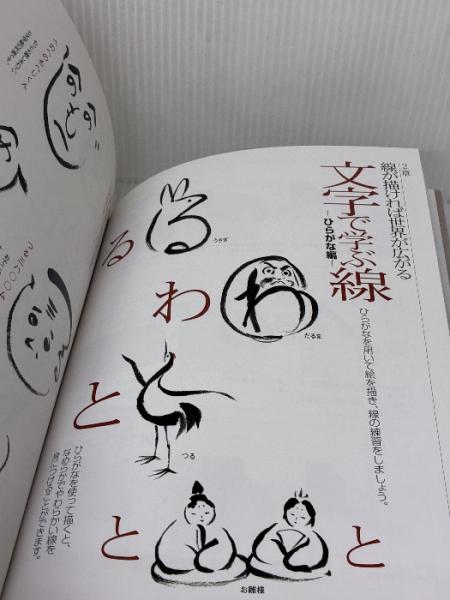 2章
線が描ければ世界が広がる
文字で学ぶ線
ーひらがな編
ひらがなを用いて絵を描き、線の練習をしましょう。
る
うさぎ
わ
だるま
と
つる
と
と
お雛様
ひらがなを使って描くと、
なめらかでやわらかい線を
身につけることができます。